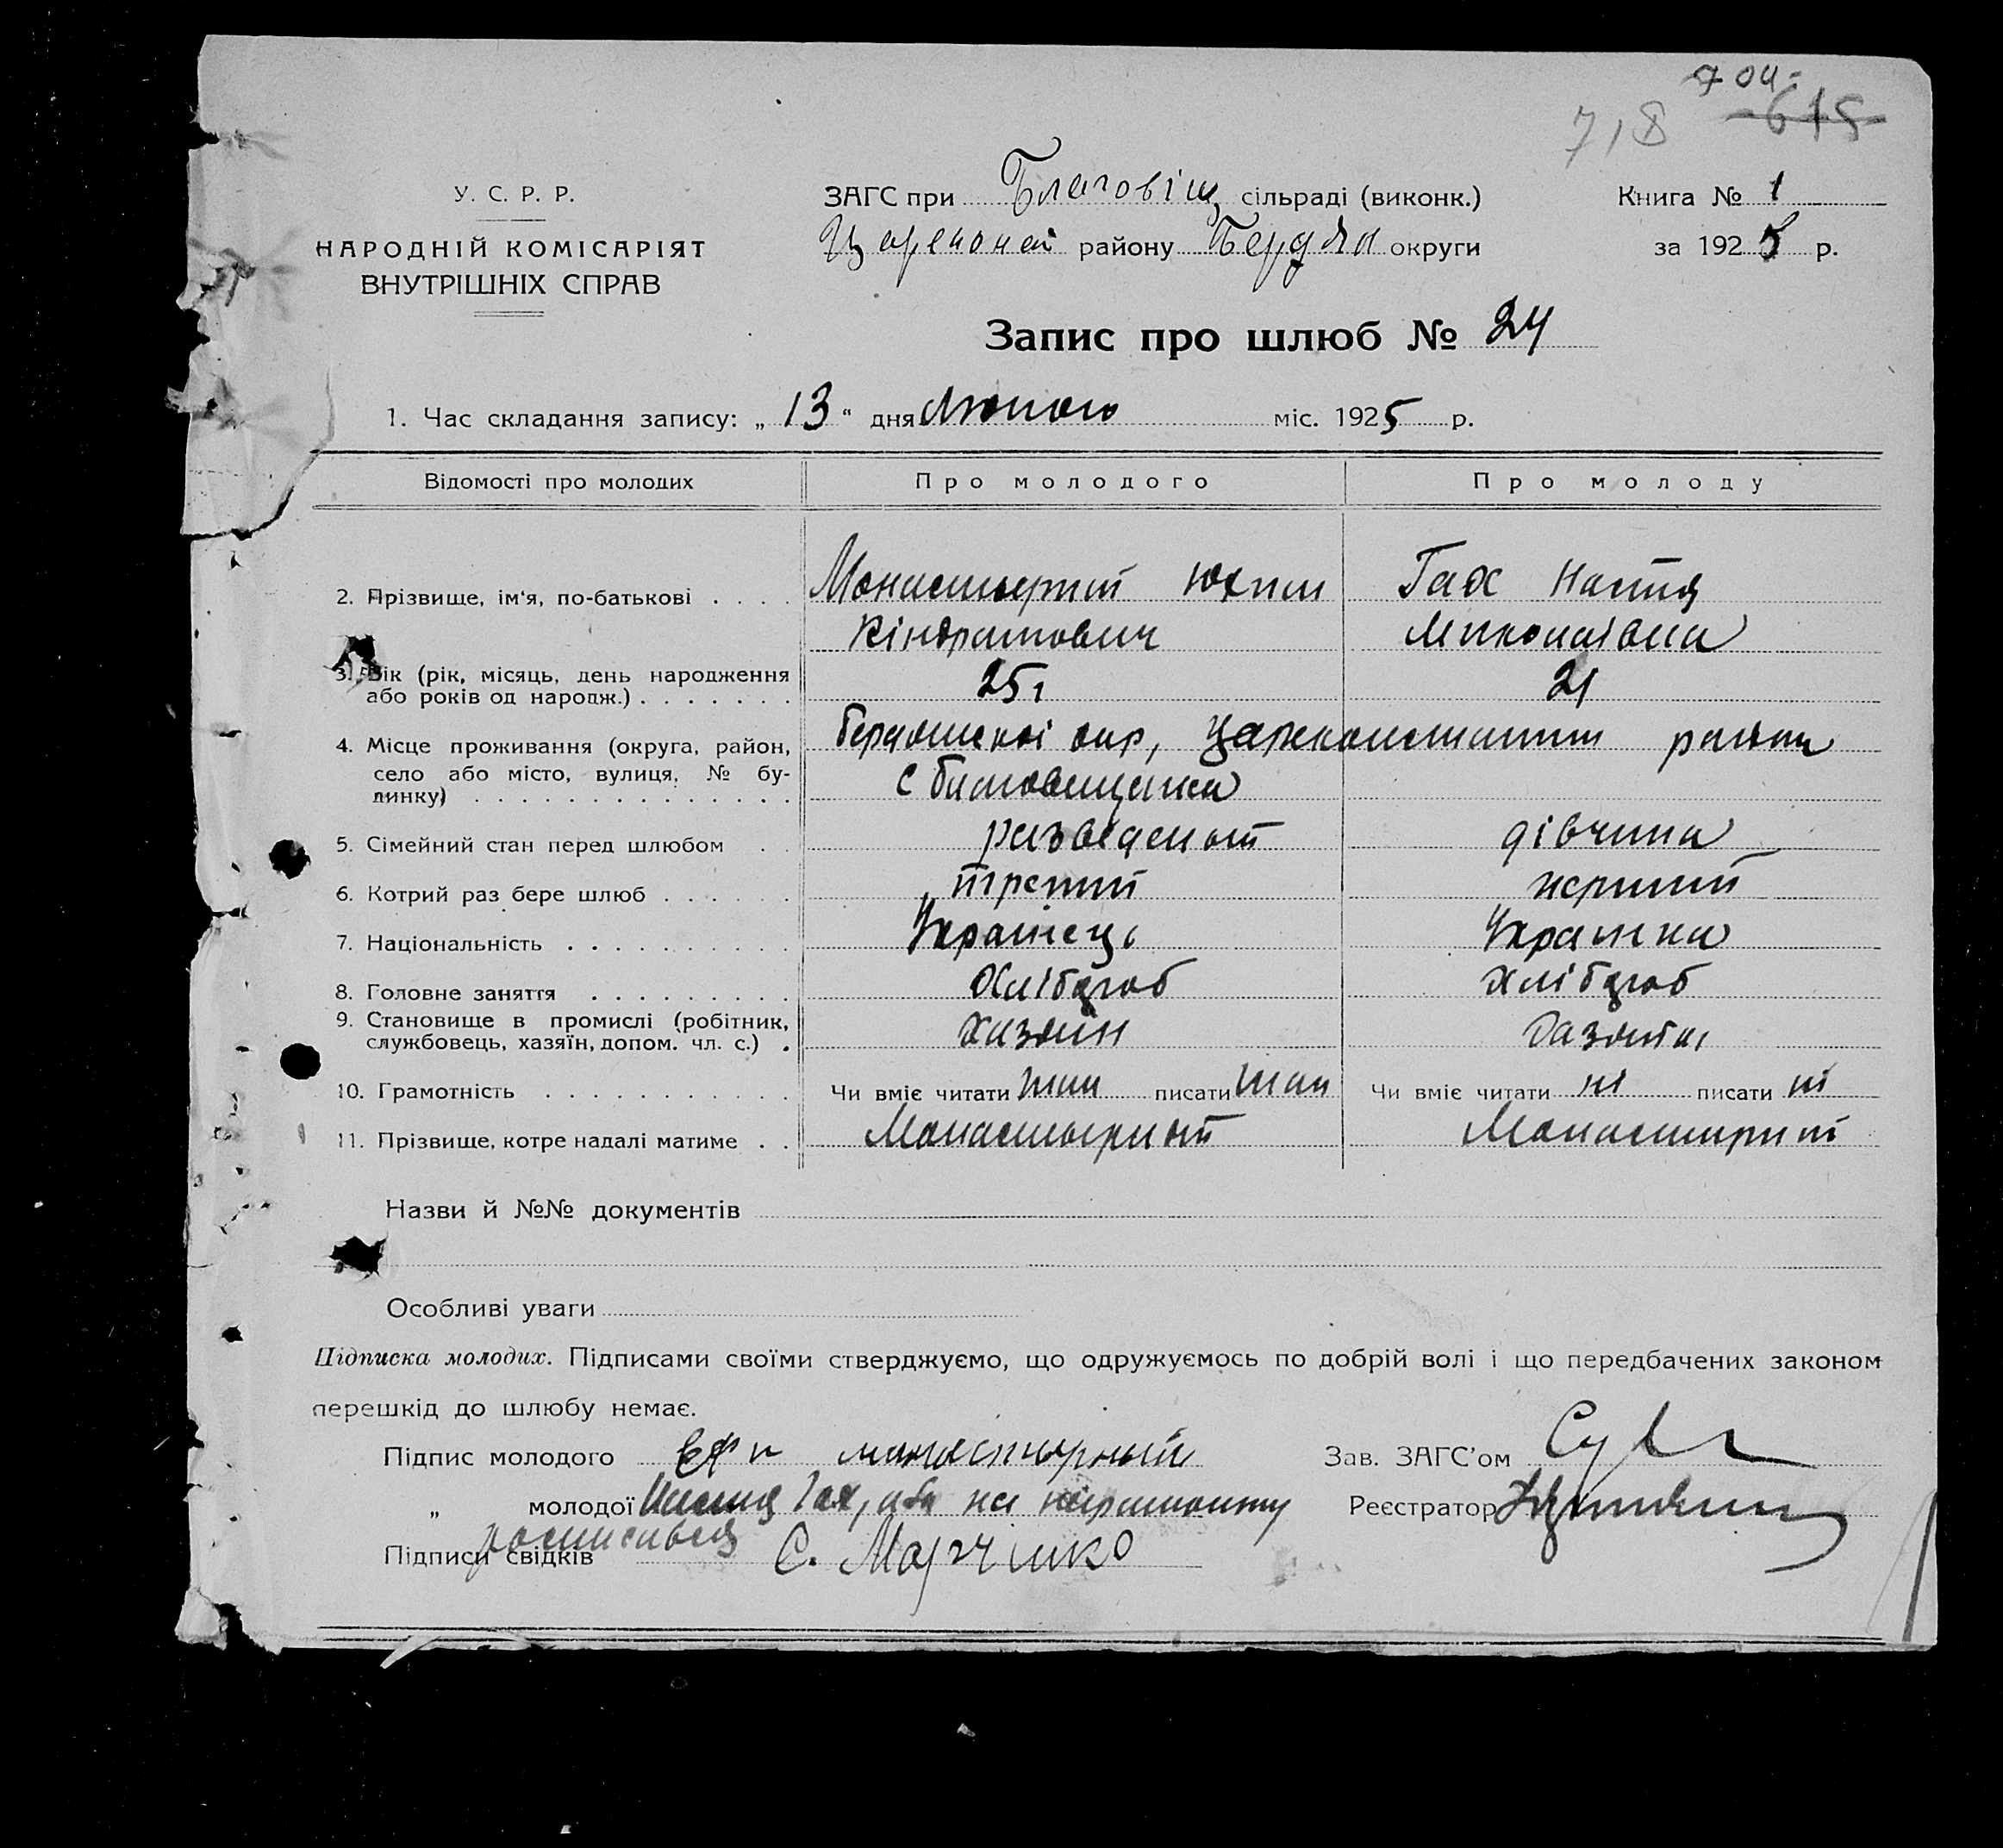 704
718 615
У. С. Р. Р.
НАРОДНІЙ КОМІСАРІЯТ
ВНУТРІШНІХ СПРАВ
ЗАГС при Благовіщ сільраді (виконк.)
району Бердян округи
Книга № 1
за 1925 р.
Запис про шлюб № 24
1. Час складання запису: „ 13 “ дня Лютого міс. 1925 р.
Відомості про молодих Про молодого Про молоду
2. Прізвище, ім'я, по-батькові Монастырний Юхим Гах Настя
Кіндратович Миколаівна
3. Вік (рік, місяць, день народження
або років од народж.) 25 21
4. Місце проживання (округа, район, окр, района
село або місто, вулиця, № бу-
динку) с
5. Сімейний стан перед шлюбом дівчина
6. Котрий раз бере шлюб третий перший
7. Національність Украінець Украінка
8. Головне заняття Хлібороб Хлібороб
9. Становище в промислі (робітник,
службовець, хазяїн, допом. чл. с.) Хазяин
10. Грамотність Чи вміє читати так писати так Чи вміє читати ні писати ні
11. Прізвище, котре надалі матиме Монастырний Монастирний
Назви й №№ документів
Особливі уваги
Підписка молодих. Підписами своїми стверджуємо, що одружуємось по добрій волі і що передбачених законом
перешкід до шлюбу немає.
Підпис молодого монастырный Зав. ЗАГС'ом
„ молодої Настя Гах, Реєстратор
росписався
Підписи свідків С.